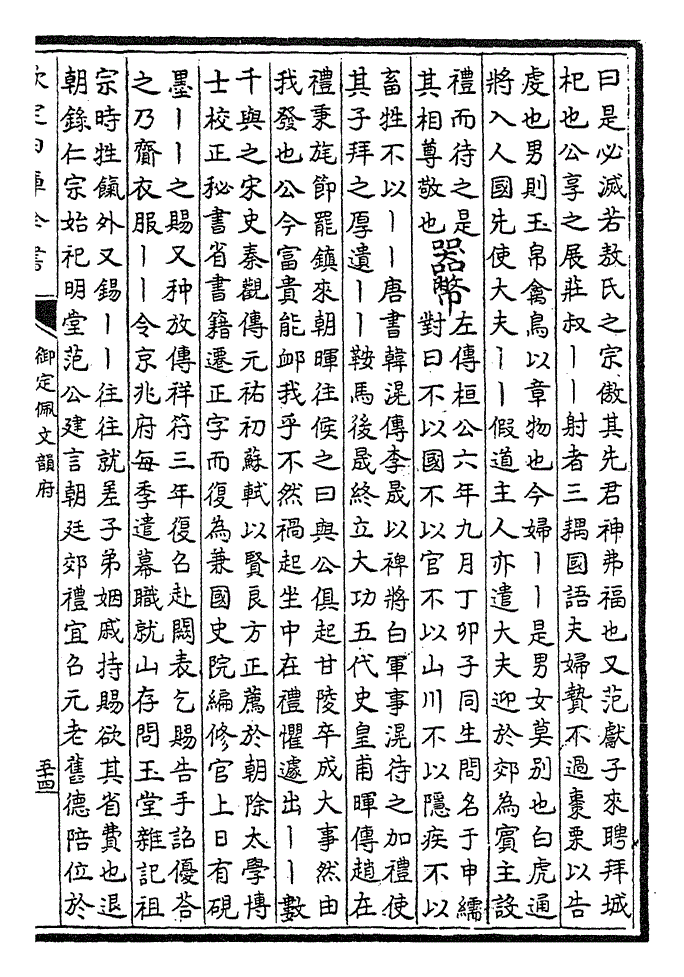 曰是必滅若敖氏之宗傲其先君神弗福也又范獻子來聘拜城
杞也公享之展莊叔丨丨射者三耦國語夫婦贄不過棗栗以告
虔也男則玉帛禽鳥以章物也今婦丨丨是男女莫別也白虎通
將入人國先使大夫丨丨假道主人亦遣大夫迎於郊為賓主設
禮而待之是
其相尊敬也
器幣
左傳桓公六年九月丁卯子同生問名于申繻
對曰不以國不以官不以山川不以隱疾不以
畜牲不以丨丨唐書韓滉傳李晟以裨將白軍事滉待之加禮使
其子拜之厚遺丨丨鞍馬後晟終立大功五代史皇甫暉傳趙在
禮秉旄節罷鎮來朝暉往候之曰與公俱起甘陵卒成大事然由
我發也公今富貴能卹我乎不然禍起坐中在禮懼遽出丨丨數
千與之宋史秦觀傳元祐初蘇軾以賢良方正薦於朝除太學博
士校正秘書省書籍遷正字而復為兼國史院編修官上日有硯
墨丨丨之賜又种放傳祥符三年復召赴闕表乞賜告手詔優荅
之乃齎衣服丨丨令京兆府每季遣幕職就山存問玉堂雜記祖
宗時牲餼外又錫丨丨往往就差子弟姻戚持賜欲其省費也退
朝錄仁宗始祀明堂范公建言朝廷郊禮宜召元老舊德陪位於
欽定四庫全書
御定佩文韻府
五十四